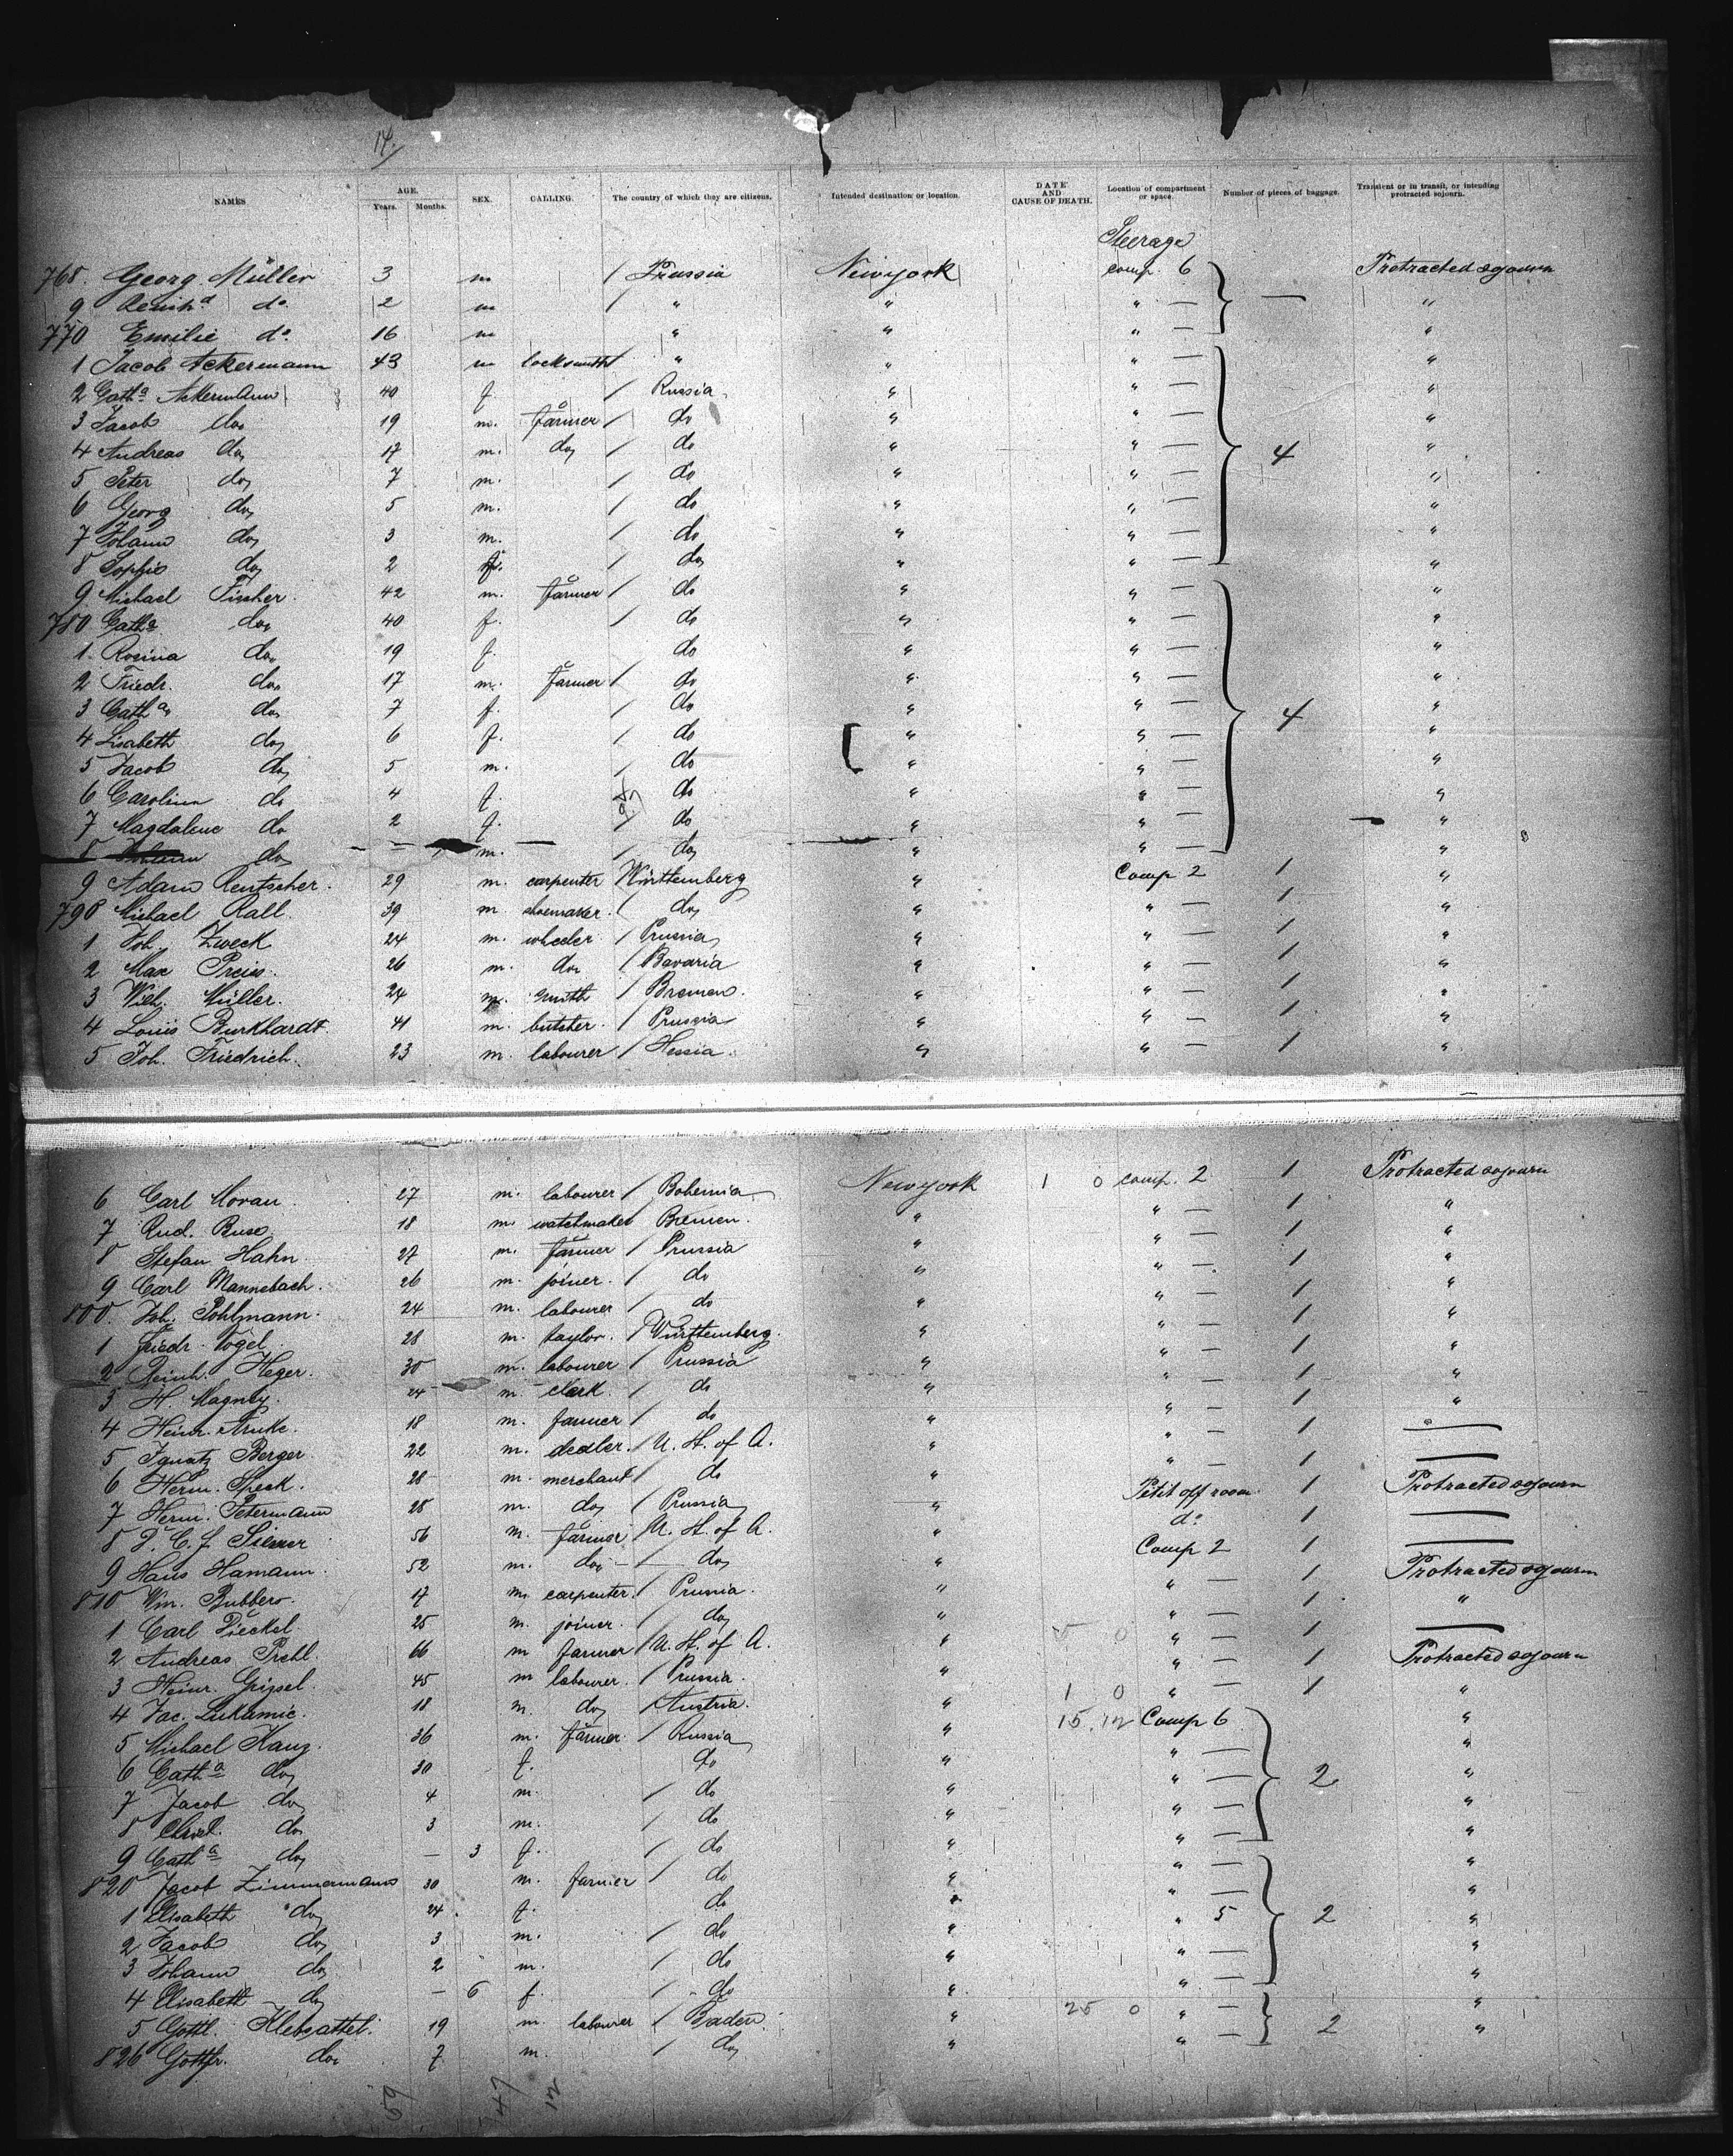 14.
NAMES AGE. Years. Months. SEX. CALLING. The country of which they are citizens. Intended destination or location. DATE AND CAUSE OF DEATH. Location of compartment or space. Number of pieces of baggage. Transient or in transit, or intending protracted sojourn.
Steerage
768. Georg Müller 3 m / Prussia Newyork comp. 6 — Protracted sojourn
9 do. 2 m / " " " — "
770 Emilie do. 16 m " " " — "
1 Jacob Ackermann 43 m locksmith / " " " — "
2 Catha. Ackermann 40 f. / Russia. " " — "
3 Jacob do. 19 m. farmer / do " " — "
4 Andreas do. 17 m. do. / do " " — 4 "
5 Peter do. 7 m. / do " " — "
6 Georg do. 5 m. / do " " — "
7 Johann do. 3 m. / do " " — "
8 Sophie do. 2 f. / do. " " — "
9 Michael Fischer. 42 m. farmer / do " " — "
780 Catha do. 40 f. / do " " — "
1. Rosina do. 19 f. do " " — "
2 Friedr. do. 17 m. farmer / do " " — "
3 Catha. do. 7 f. / do " " — 4 "
4 Lisabeth do. 6 f. / do " " — "
5 Jacob do. 5 m. / do " " — "
6 Carolina do 4 f. do " " — "
7 Magdalene do 2 f. / do " " — "
8 do. — m. — / do. " " — "
9 Adam Rentscher. 29 m. carpenter / Württemberg " Comp 2 1 "
790 Michael Rall. 39 m. shoemaker. / do. " " — 1 "
1 Joh. Zweck 24 m. wheeler / Prussia " " — 1 "
2 Max Preiss. 26 m. do. / Bavaria " " — 1 "
3 Wilh. Müller. 24 m. smith / Bremen. " " — 1 "
4 Louis Burkhardt. 41 m. butcher. / Prussia " " — 1 "
5 Joh. Friedrich. 23 m. labourer / Hessia. " " — 1 "
6 Carl Moran 27 m. labourer / Bohemia Newyork 1 0 comp. 2 1 Protracted sojourn
7 Rud. Buse 18 m. watchmaker Bremen. " " — 1 "
8 Stefan Hahn 27 m. farmer / Prussia " " — 1 "
9 Carl Mannebach. 26 m. joiner. / do " " — 1 "
800. Joh. Pohlmann. 24 m. labourer / do " " — 1 "
1 Friedr. Vogel 28 m. taylor. / Württemberg. " " — 1 "
2 Reinh. Heger. 30 m. labourer / Prussia " " — 1 "
3 H. Magney. 24 m clerk. / do " " — 1 "
4 Heinr. 18 m. farmer / do " " — 1 —
5 Ignatz Berger 22 m. dealer. / U. St. of A. " " — 1 —
6 Herm. Speck. 28 m. merchant / do " Petit off room 1 Protracted sojourn
7 Herm. Petermann 28 m. do. / Prussia " do. 1 —
8 C. J. Siemer 56 m. farmer / U. St. of A. " Comp 2 1 —
9 Hans Hamann. 52 m. do. — / do. " " — 1 Protracted sojourn
810 Wm. Bubbers. 17 m. carpenter. / Prussia. " " — 1 "
1 Carl Pieckel. 25 m. joiner. / do. " 5 0 " — 1 —
2 Andreas Prehl. 66 m farmer / U. St. of A. " " — 1 Protracted sojourn
3 Heinr. Gripsel. 45 m labourer. / Prussia. " 1 0 " — 1 "
4 Jac. Lukamic. 18 m. do. / Austria. " 15.12 Comp 6 "
5 Michael Kanz. 36 m. farmer / Russia " " — "
6 Catha do. 30 f. do " " — 2 "
7 Jacob do. 4 m. / do " " — "
8 Christ. do. 3 m. / do " " — "
9 Catha do. — 3 f. / do " " — "
820 Jacob Zimmermann 30 m. farmer / do " " — "
1 Elisabeth do. 24 f. do " " 5 2 "
2 Jacob do. 3 m. / do " " — "
3 Johann do. 2 m. / do " " — "
4 Elisabeth do. — 6 f. / do " " — "
5 Gottl. Klebsattel. 19 m. labourer / Baden " 25 0 " — 2 "
826 Gottfr. do. 7 m. / do. " " —
59 47 12